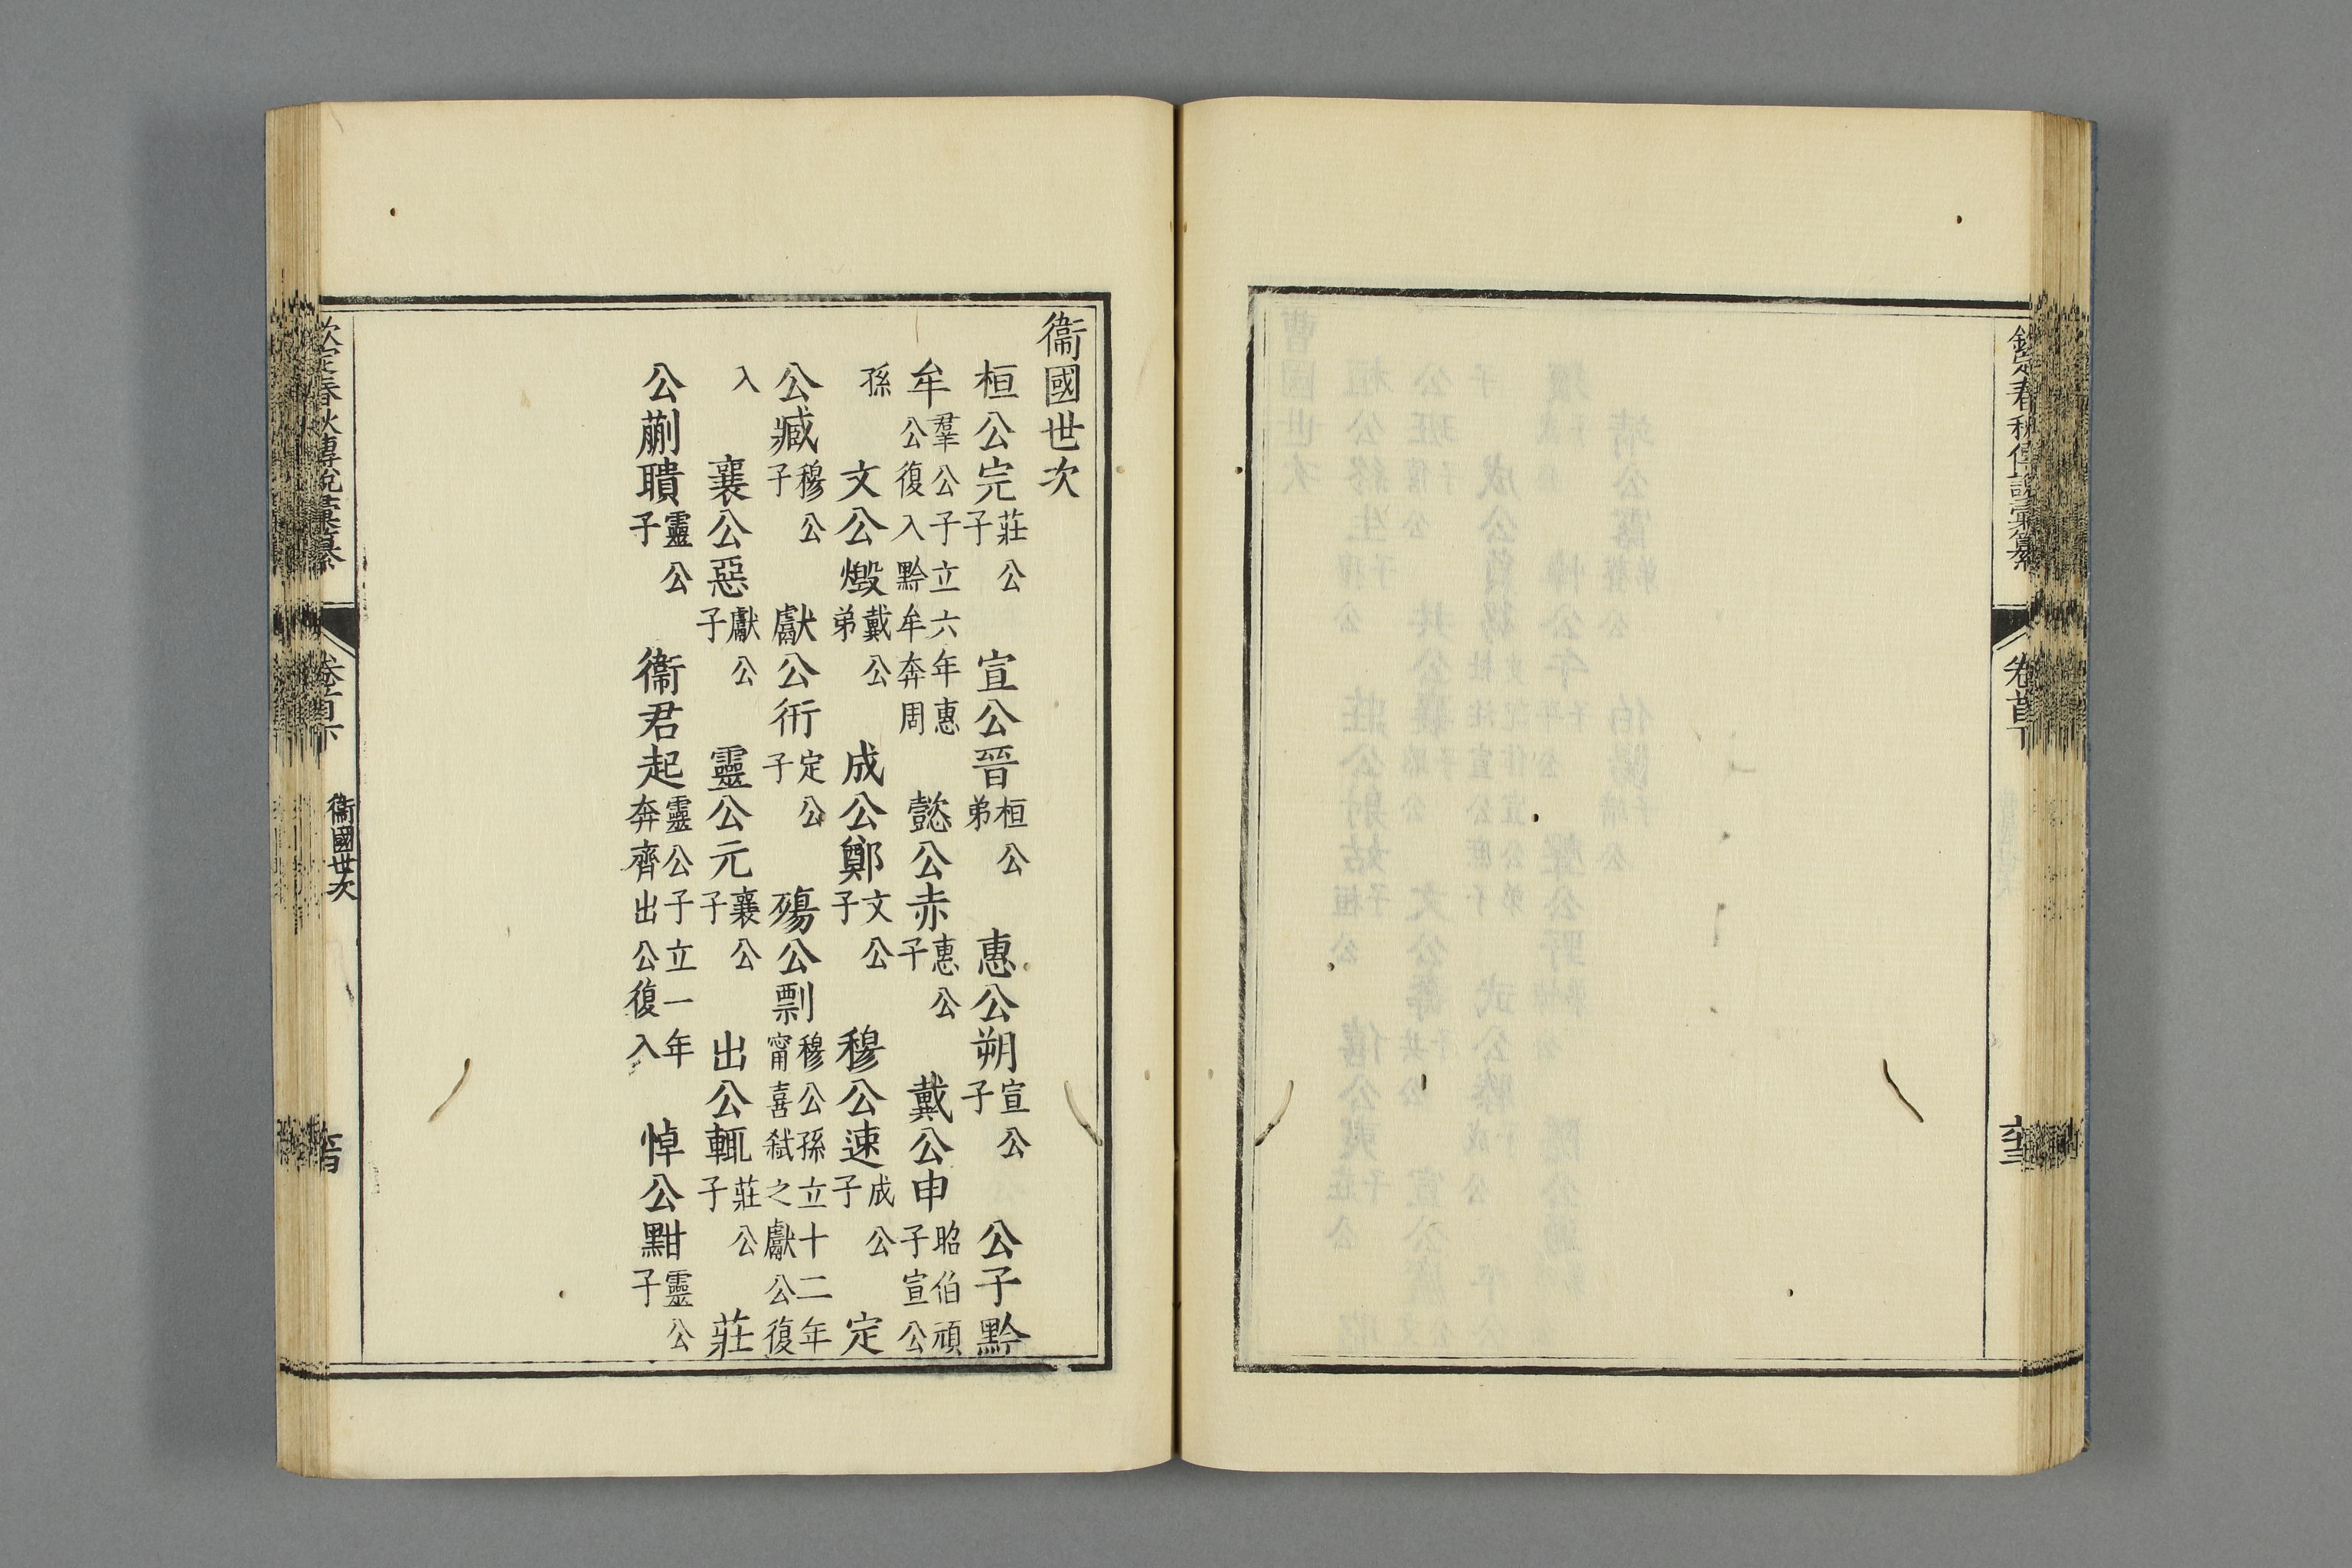 欽定春秋傳說彙纂
卷首下
衞國世次
桓公完莊公子 宣公晉桓公弟 惠公朔宣公子 公子黔
牟羣公子立六年惠公復入黔牟奔周 懿公赤惠公子 戴公申昭伯頑子宣公
孫 文公燬戴公弟 成公鄭文公子 穆公速成公子 定
公臧穆公子 獻公衎定公子 殤公剽穆公孫立十二年甯喜弒之獻公復
入 襄公惡獻公子 靈公元襄公子 出公輒莊公子 莊
公蒯聵靈公子 衞君起靈公子立一年奔齊出公復入 悼公黚靈公子
欽定春秋傳說彙纂
卷首下
衞國世次